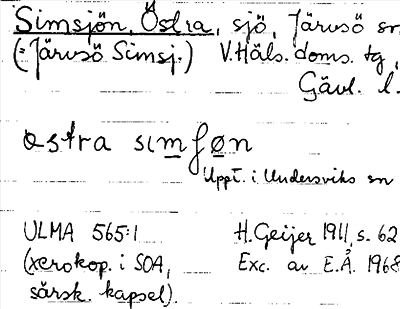 Simsjön, Östra, sjö, Järvsö sn
(= Järvsö Simsj.) V. Häls. doms. tg,
Gävl. l.
østra simʃøn
Uppt. i Undersviks sn
ULMA 565:1 H. Geijer 1911, s. 62
(xerokop. i SOA, Exc. av E.Å. 1968
särsk. kapsel).